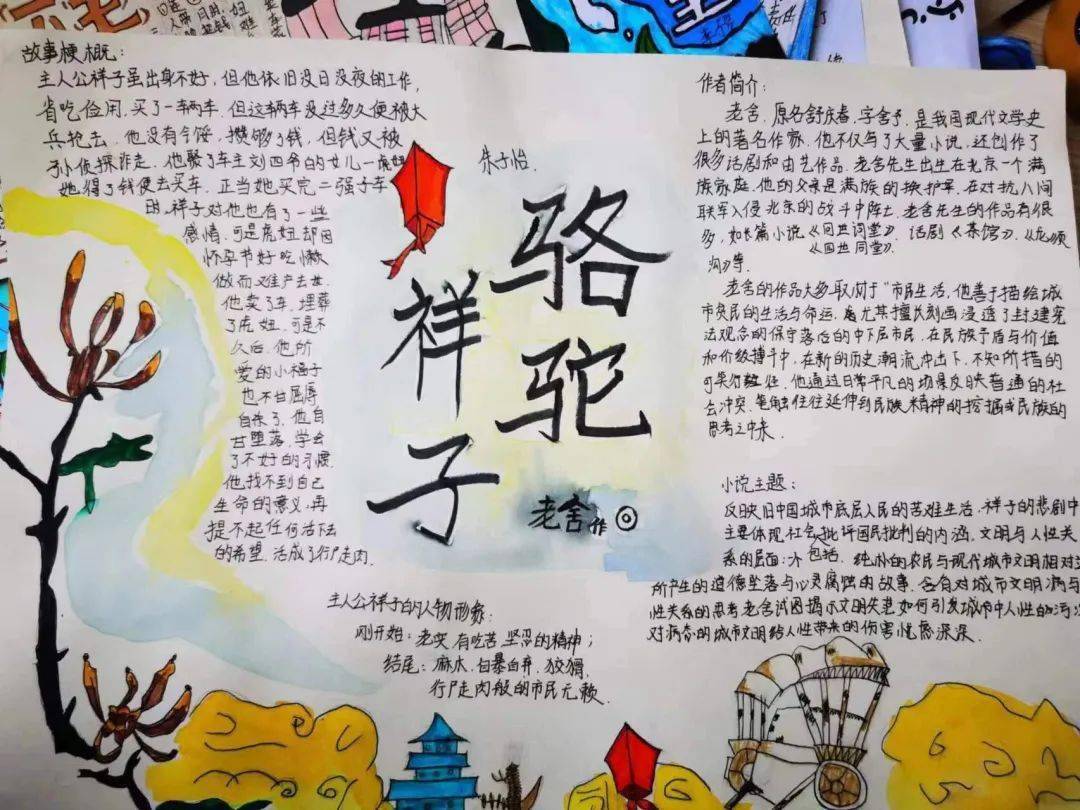 故事梗概：
主人公祥子虽出身不好，但他依旧没日没夜的工作，
省吃俭用，买了一辆车，但这辆车没过多久便被大
兵抢去，他没有气馁，攒够了钱，但钱又被
孙侦探诈走，他娶了车主刘四爷的女儿一虎妞
她得了钱便去买车，正当她买完二强子车
时，祥子对他也有了一些
感情，可是虎妞却因
怀孕节好吃懒
做而又难产去世，
他卖了车，埋葬
了虎妞，可是不
久后，他所
爱的小福子
也不甘屈辱
自杀了，他自
甘堕落，学会
了不好的习惯，
他找不到自己
生命的意义，再
提不起任何活下去
的希望，活成了行尸走肉。
朱子怡
骆驼
祥子
老舍作
作者简介：
老舍，原名舒庆春，字舍予，是我国现代文学史
上的著名作家，他不仅写了大量小说，还创作了
很多话剧和曲艺作品。老舍先生出生在北京一个满
族家庭，他的父亲是满族的换护军，在对抗八国
联军入侵北京的战斗中阵亡，老舍先生的作品有很
多，如长篇小说《四世同堂》，话剧《茶馆》，《龙须
《四世同堂》
沟》等
老舍的作品大多取材于“市民生活，他善于描绘城
市贫民的生活与命运，尤其擅长刻画浸透了封建宗
法观念的保守落后的中下层市民，在民族矛盾与价值
和价级搏斗中，在新的历史潮流冲击下，不知所措的
他通过日常平凡的场景反映普通的社
会冲突，笔触往往延伸到民族精神的挖掘或民族的
思考之中来。
小说主题：
反映旧中国城市底层人民的苦难生活，祥子的悲剧中
主要体现社会批评国民批判的内涵，文明与人性关
系的层面：包括，纯朴的农民与现代城市文明相对立
所产生的道德坠落与心灵腐蚀的故事，含有对城市文明病与
性关系的思考老舍试图揭示文明失范如何引发城市中人性的污
对病态的城市文明给人性带来的伤害忧虑深深。
主人公祥子的人物形象：
刚开始：老实，有吃苦，坚忍的精神；
结尾：麻木，自暴自弃，狡猾，
行尸走肉般的市民无赖。